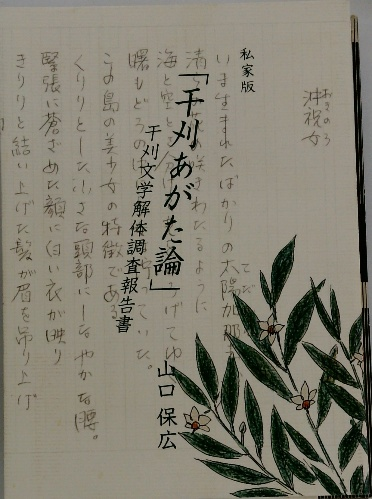 私家版
「干刈あがた論」
干刈文学解体調査報告書
山口 保広
おきのろ
沖祝女
いま生まれたばかりの太陽加那
てだ
清 咲きわたるように
海と空と げてゆ
曙もどろの ていた。
この島の美少女の特徴である
くりりとした小さな頭部にしなやかな腰。
緊張に蒼ざめた顔に白い衣が映り
きりりと結い上げた髪が眉を吊り上げ